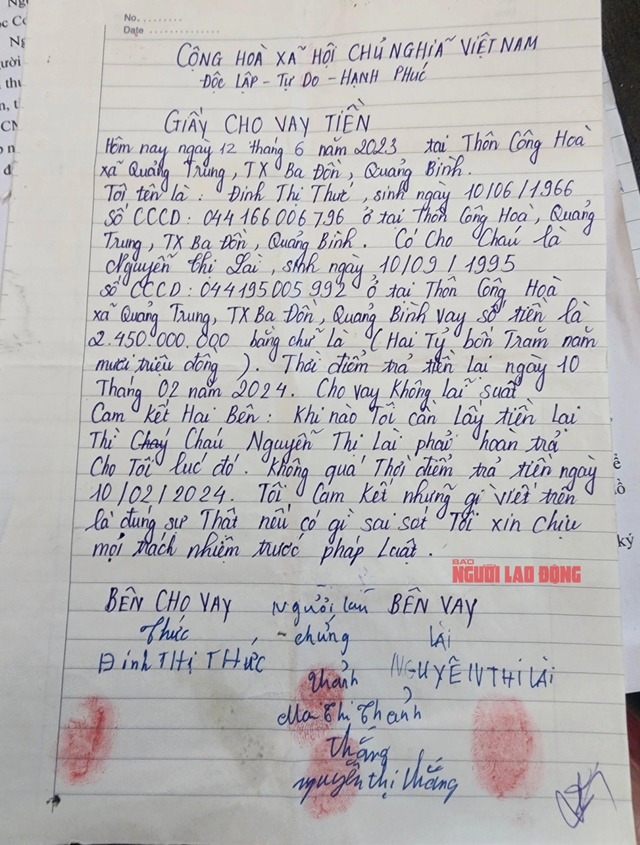 No. ..........
Date ..........
CỘNG HOÀ XÃ HỘI CHỦ NGHĨA VIỆT NAM
ĐỘC LẬP - TỰ DO - HẠNH PHÚC
GIẤY CHO VAY TIỀN
Hôm nay ngày 12 tháng 6 năm 2023 tại Thôn Công Hoà
xã Quảng Trung, TX Ba Đồn, Quảng Bình.
Tôi tên là: Đinh Thị Thức, sinh ngày 10/06/1966
Số CCCD: 044166006796 ở tại Thôn Công Hoà, Quảng
Trung, TX Ba Đồn, Quảng Bình. Có Cho Cháu là
Nguyễn Thị Lài, sinh ngày 10/09/1995
số CCCD: 044195005992 ở tại Thôn Công Hoà
xã Quảng Trung, TX Ba Đồn, Quảng Bình vay số tiền là
2.450.000.000 bằng chữ là (Hai Tỷ bốn Trăm năm
mươi triệu đồng). Thời điểm trả tiền lại ngày 10
Tháng 02 năm 2024. Cho vay Không lãi suất
Cam kết Hai Bên: Khi nào Tôi cần Lấy tiền Lại
Thì Cháu Nguyễn Thị Lài phải hoàn trả
Cho Tôi lúc đó. Không quá Thời điểm trả tiền ngày
10/02/2024. Tôi Cam Kết những gì viết trên
là đúng sự Thật nếu có gì sai sót Tôi xin chịu
mọi trách nhiệm trước pháp Luật.
BÁO
NGƯỜI LAO ĐỘNG
BÊN CHO VAY Người làm BÊN VAY
Thức chứng LÀI
ĐINH THỊ THỨC Thảnh NGUYỄN THỊ LÀI
Thị Thảnh
Thắng
Nguyễn Thị Thắng
ký